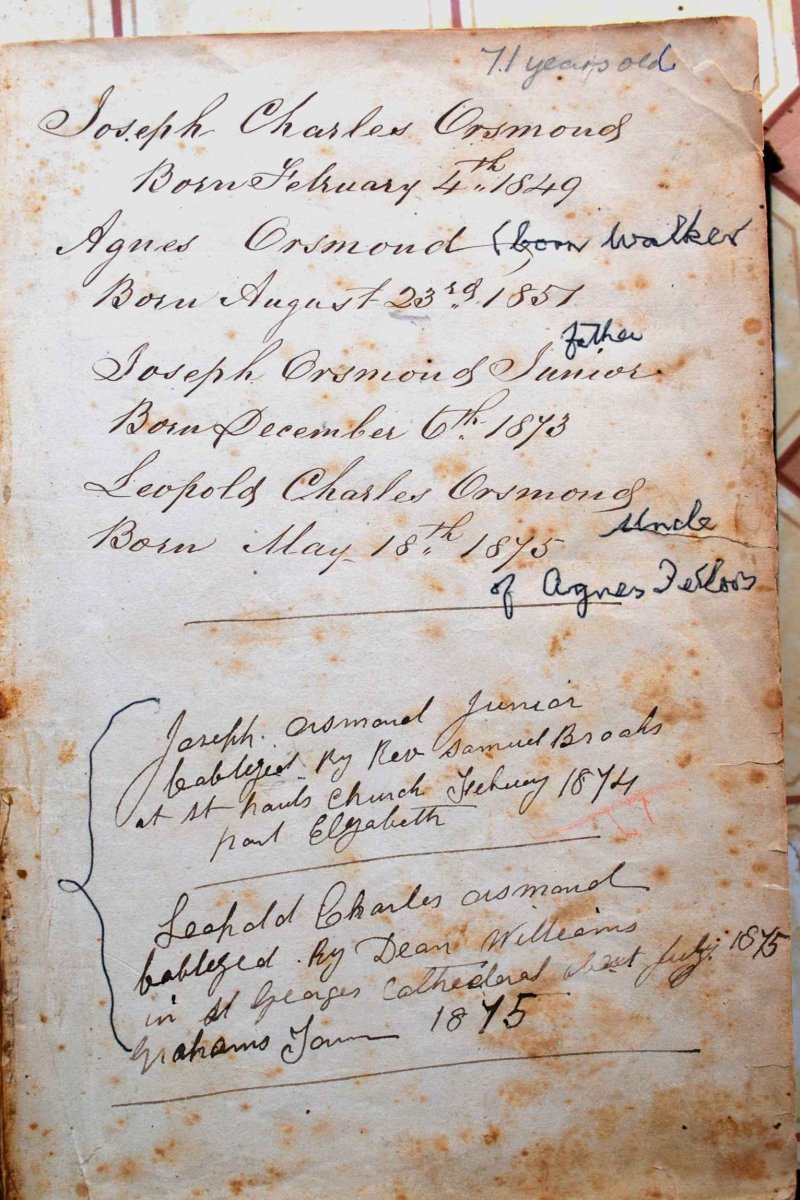 71 years old
Joseph Charles Orsmond
Born February 4th 1849
Agnes Orsmond (born Walker
Born August 23rd 1851
father
Joseph Orsmond Junior
Born December 6th 1873
Leopold Charles Orsmond
Born May 18th 1875 Uncle
of Agnes
Joseph. orsmond Junior
babtezed By Rev Samuel Brooks
at St Pauls Church Febuary 1874
port Elyzabeth
Leopold Charles orsmond
babtezed By Dean Williams
in St Georges Cathederal about July. 1875
Grahams Town 1875